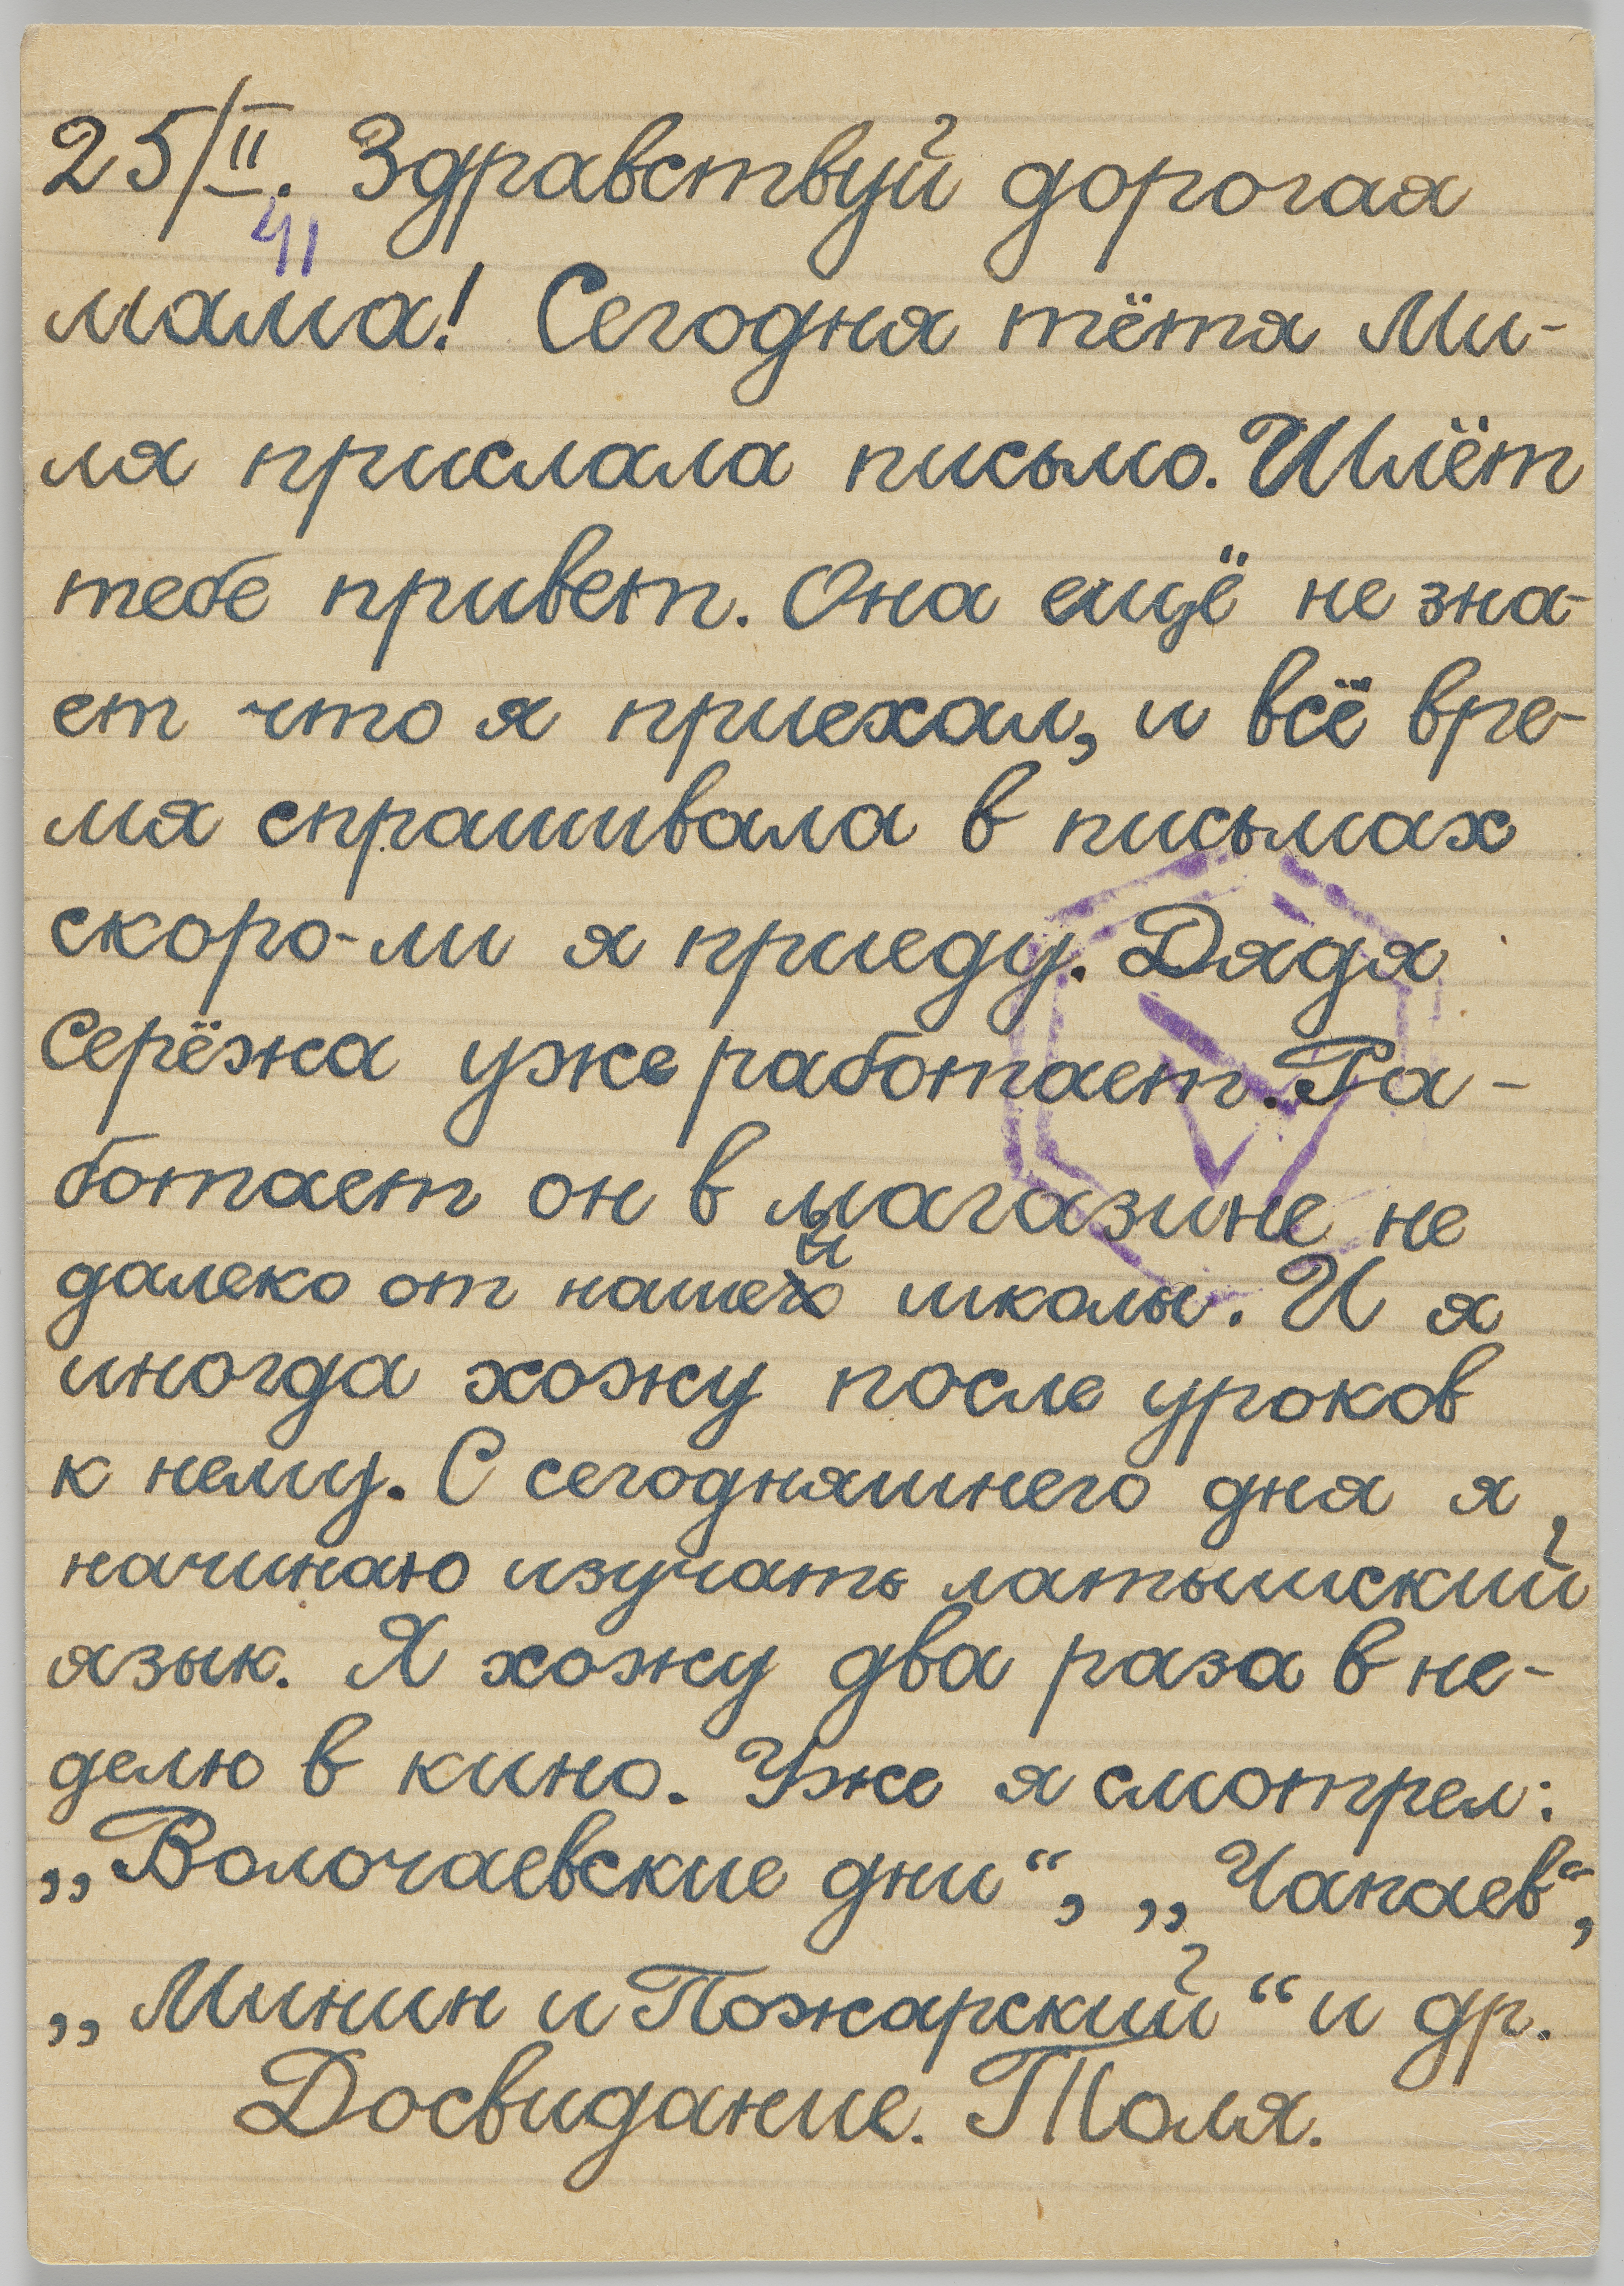 25/II. Здравствуй дорогая
41
мама! Сегодня тётя Ми-
ля прислала письмо. Шлёт
тебе привет. Она ещё не зна-
ет что я приехал, и всё вре-
мя спрашивала в письмах
скоро-ли я приеду. Дядя
Серёжа уже работает. Ра-
ботает он в магазине не
далеко от нашей школы. И я
иногда хожу после уроков
к нему. С сегодняшнего дня я
начинаю изучать латышский
язык. Я хожу два раза в не-
делю в кино. Уже я смотрел:
„Волочаевские дни“, „Чапаев“,
„Минин и Пожарский“ и др.
Досвидание. Толя.